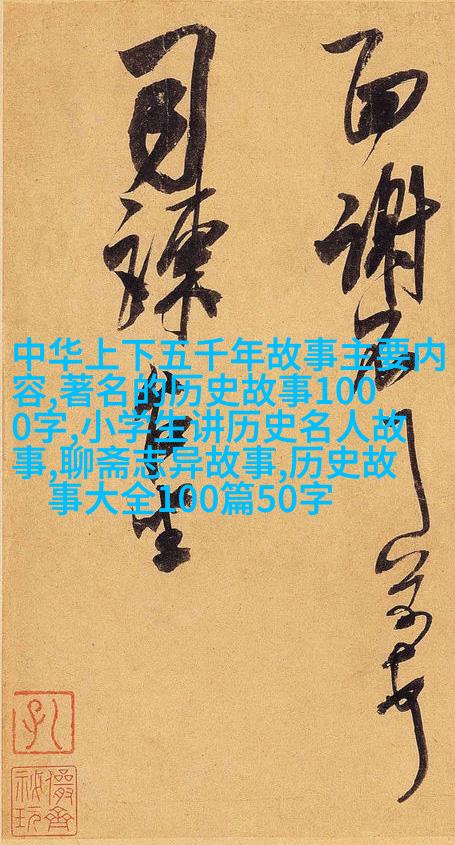 中华上下五千年故事主要内
容,著名的历史故事100
0字,小学生讲历史名人故
事,聊斋志异故事,历史故
事大全100篇50字
面謝
司諫台坐
儼齋秘玩